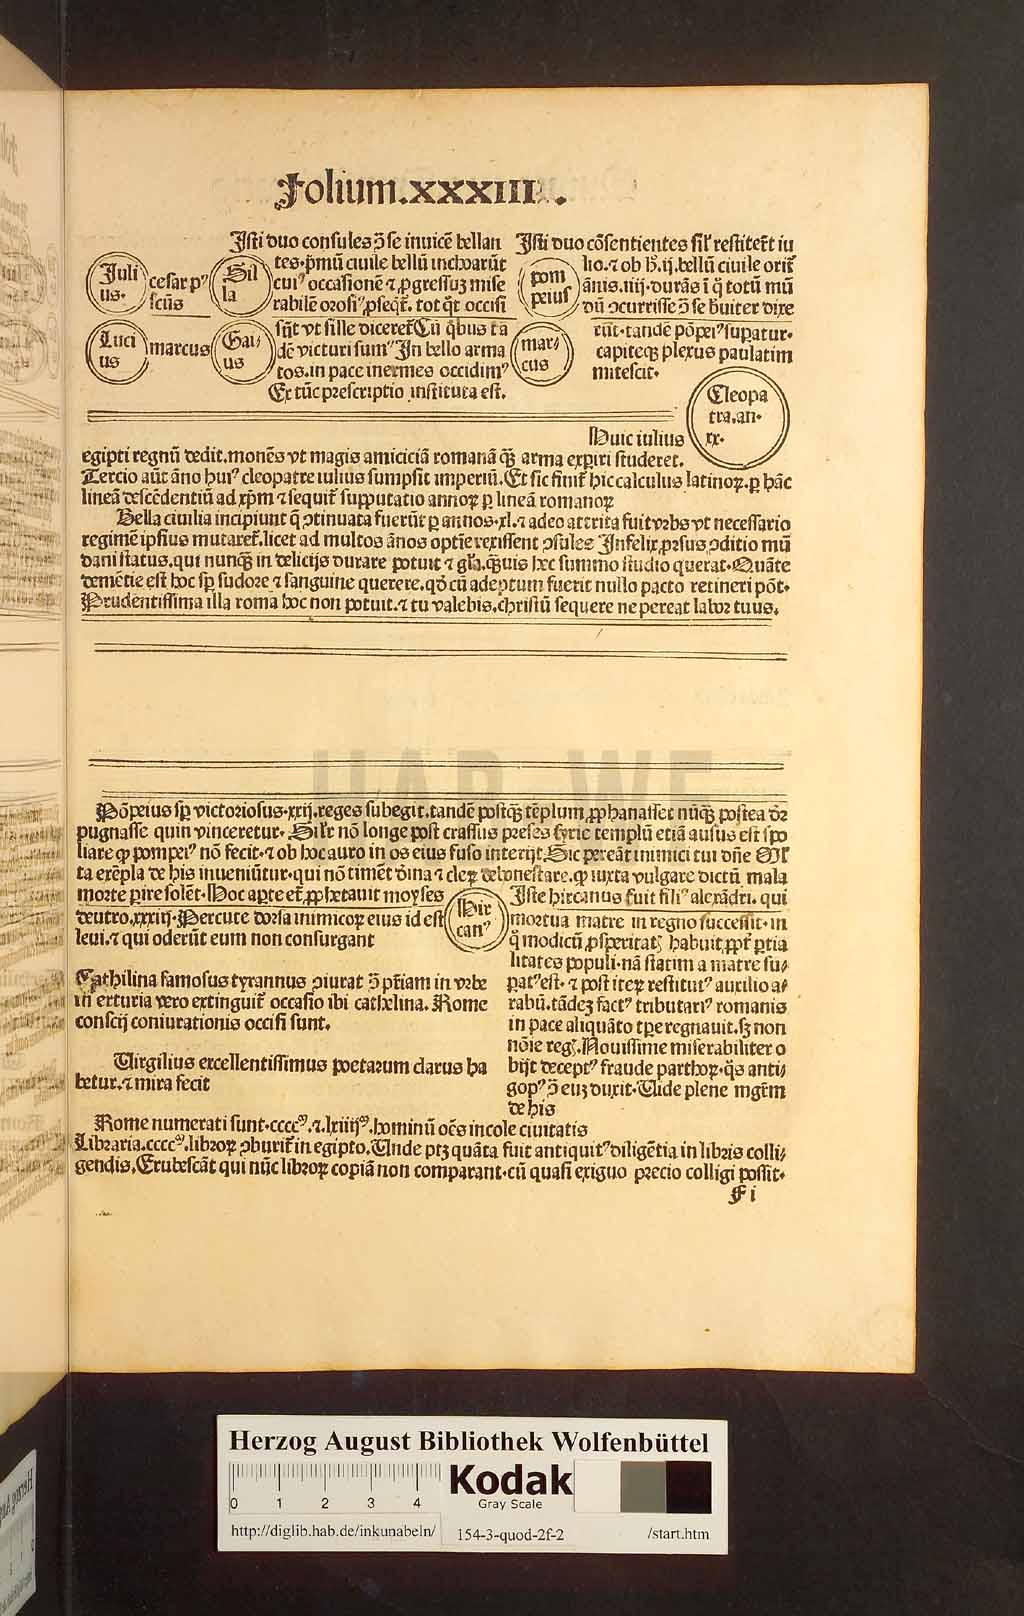 Folium.XXXIIII.
Juli
us.
cesar pꝰ
scūs
Sil
la
Luci
us
marcus
Gai⸗
us
Isti duo consules ↄ̄ se inuicē bellan
tes.pͥmū ciuile bellū inchoarūt
cuiꝰ occasionē ⁊ ꝓgressuꝫ mise
rabilē orosiꝰ ꝓseqt̄. tot qt̄ occisi
sūt vt sille diceret̄ Cū qͥbus tā
dē victuri sumꝰ In bello arma
tos.in pace inermes occidimꝰ
Ex tūc prescriptio instituta est.
pom
peius
mar⸗
cus
Isti duo cōsentientes silr̄ restitert̄ iu
lio.⁊ ob h̄.ij.bellū ciuile orit̄
ānis.iiij.durās ī q̄ totū mū
dū ↄcurrisse ↄ̄ se breuiter dixe
rūt.tandē pōpeiꝰ suꝑatur.
capiteqꝫ plexus paulatim
mitescit.
Cleopa
tra.an.
xx.
Huic iulius
egipti regnū dedit.monēs vt magis amiciciā romanā qꝫ̄ arma exꝑiri studeret.
Tercio aūt āno huiꝰ cleopatre iulius sumpsit imperiū.Et sic finit̄ hic calculus latinoꝝ.ꝑ hāc
lineā descēdentiū ad xp̄m ⁊ sequit̄ supputatio annoꝝ ꝑ lineā romanoꝝ
Bella ciuilia incipiunt q̄ ↄtinuata fuerūt ꝑ annos.xl.⁊ adeo attrita fuit vrbs vt necessario
regimē ipsius mutaret̄.licet ad multos ānos optīe rexissent ↄsules Infelix ꝓrsus ↄditio mū
dani status.qui nunqꝫ̄ in delicijs durare potuit ⁊ gl̄ia.qꝫ̄uis hec summo studio querat.Quāte
demētie est hoc sp̄ sudore ⁊ sanguine querere.qd̄ cū adeptum fuerit nullo pacto retineri pōt.
Prudentissima illa roma hoc non potuit.⁊ tu valebis.christū sequere ne pereat labor tuus.
Pōpeius sp̄ victoriosus.xxij.reges subegit.tandē postqꝫ̄ tēplum ꝓphanasset nūqꝫ̄ postea dr̄
pugnasse quin vinceretur. Silr̄ nō longe post crassus preses syrie templū etiā ausus est spo
liare qd̄ pompeiꝰ nō fecit.⁊ ob hoc auro in os eius fuso interijt.Sic pereāt inimici tui dn̄e Ml̄
ta exēpla de his inueniūtur.qui nō timēt dīna ⁊ cleꝝ dehonestare.qꝛ iuxta vulgare dictū mala
morte ꝑire solēt.Hoc aꝑte et̄ ꝓphetauit moyses
deutro.xxxiij.Percute dorsa inimicoꝝ eius id est
leui.⁊ qui oderūt eum non consurgant
Hir
canꝰ
Iste hircanus fuit filiꝰ alexādri. qui
mortua matre in regno successit.in
q̄ modicū ꝓsperitatꝭ habuit ꝓpt̄ ꝑtia
litates populi.nā statim a matre su⸗
ꝑatꝰ est. ⁊ post iteꝝ restitutꝰ auxilio a⸗
rabū.tādeꝫ factꝰ tributariꝰ romanis
in pace aliquāto tꝑe regnauit.sꝫ non
nōie regꝭ.Nouissime miserabiliter o
bijt deceptꝰ fraude parthoꝝ.qͦs anti⸗
gonꝰ ↄ̄ euꝫ duxit.Vide plene mgr̄m
de his
Cathilina famosus tyrannus ↄiurat ↄ̄ pr̄iam in vrbe
in erturia vero extinguit̄ occasio ibi cathelina. Rome
conscij coniurationis occisi sunt.
Virgilius excellentissimus poetarum clarus ha
betur.⁊ mira fecit
Rome numerati sunt.ccccᵐ.⁊.lxiiijᵐ.hominū oēs incole ciuitatis
Libraria.ccccᵐ.libroꝝ ↄburit̄ in egipto.Unde ptꝫ quāta fuit antiquitꝰ diligētia in libris colli⸗
gendis.Erubescāt qui nūc libroꝝ copiā non comparant.cū quasi exiguo precio colligi possit.
F i
HAB WF
Herzog August Bibliothek Wolfenbüttel
0 1 2 3 4
Kodak
Gray Scale
http://diglib.hab.de/inkunabeln/ 154-3-quod-2f-2 /start.htm